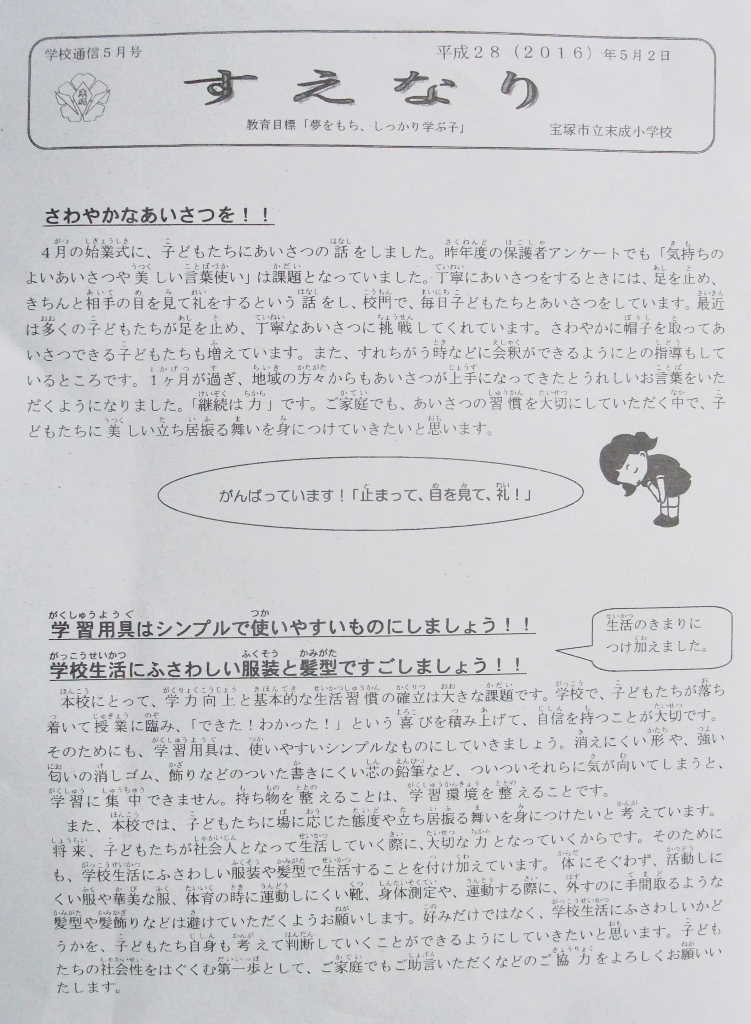 学校通信5月号
平成28（2016）年5月2日
すえなり
教育目標「夢をもち、しっかり学ぶ子」
宝塚市立末成小学校
さわやかなあいさつを！！
4月の始業式に、子どもたちにあいさつの話をしました。昨年度の保護者アンケートでも「気持ちの
よいあいさつや美しい言葉使い」は課題となっていました。丁寧にあいさつをするときには、足を止め、
きちんと相手の目を見て礼をするという話をし、校門で、毎日子どもたちとあいさつをしています。最近
は多くの子どもたちが足を止め、丁寧なあいさつに挑戦してくれています。さわやかに帽子を取ってあ
いさつできる子どもたちも増えています。また、すれちがう時などに会釈ができるようにとの指導もして
いるところです。1ヶ月が過ぎ、地域の方々からもあいさつが上手になってきたとうれしいお言葉をいた
だくようになりました。「継続は力」です。ご家庭でも、あいさつの習慣を大切にしていただく中で、子
どもたちに美しい立ち居振る舞いを身につけていきたいと思います。
がんばっています！「止まって、目を見て、礼！」
学習用具はシンプルで使いやすいものにしましょう！！
学校生活にふさわしい服装と髪型ですごしましょう！！
生活のきまりに
つけ加えました。
本校にとって、学力向上と基本的な生活習慣の確立は大きな課題です。学校で、子どもたちが落ち
着いて授業に臨み、「できた！わかった！」という喜びを積み上げて、自信を持つことが大切です。
そのためにも、学習用具は、使いやすいシンプルなものにしていきましょう。消えにくい形や、強い
匂いの消しゴム、飾りなどのついた書きにくい芯の鉛筆など、ついついそれらに気が向いてしまうと、
学習に集中できません。持ち物を整えることは、学習環境を整えることです。
また、本校では、子どもたちに場に応じた態度や立ち居振る舞いを身につけたいと考えています。
将来、子どもたちが社会人となって生活していく際に、大切な力となっていくからです。そのために
も、学校生活にふさわしい服装や髪型で生活することを付け加えています。体にそぐわず、活動しに
くい服や華美な服、体育の時に運動しにくい靴、身体測定や、運動する際に、外すのに手間取るような
髪型や髪飾りなどは避けていただくようお願いします。好みだけではなく、学校生活にふさわしいかど
うかを、子どもたち自身も考えて判断していくことができるようにしていきたいと思います。子ども
たちの社会性をはぐくむ第一歩として、ご家庭でもご助言いただくなどのご協力をよろしくお願いい
たします。